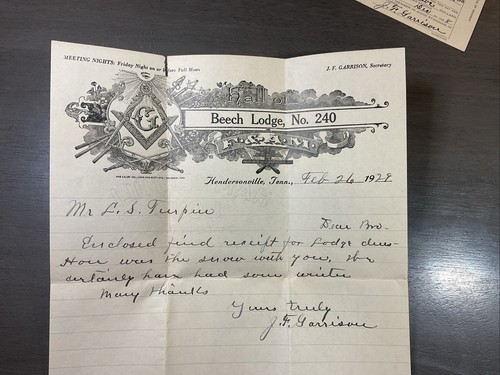 MEETING NIGHTS: Friday Night on or Before Full Moon
J. F. GARRISON, Secretary
Hall of
Beech Lodge, No. 240
F. & A. M.
G
Hendersonville, Tenn., Feb 26 1929
Mr L. S. Turpin
Dear Bro-
Enclosed find receipt for Lodge dues-
How was the snow with you, We
certainly have had some winter
Many thanks
Yours truly
J. F. Garrison
J. F. Garrison